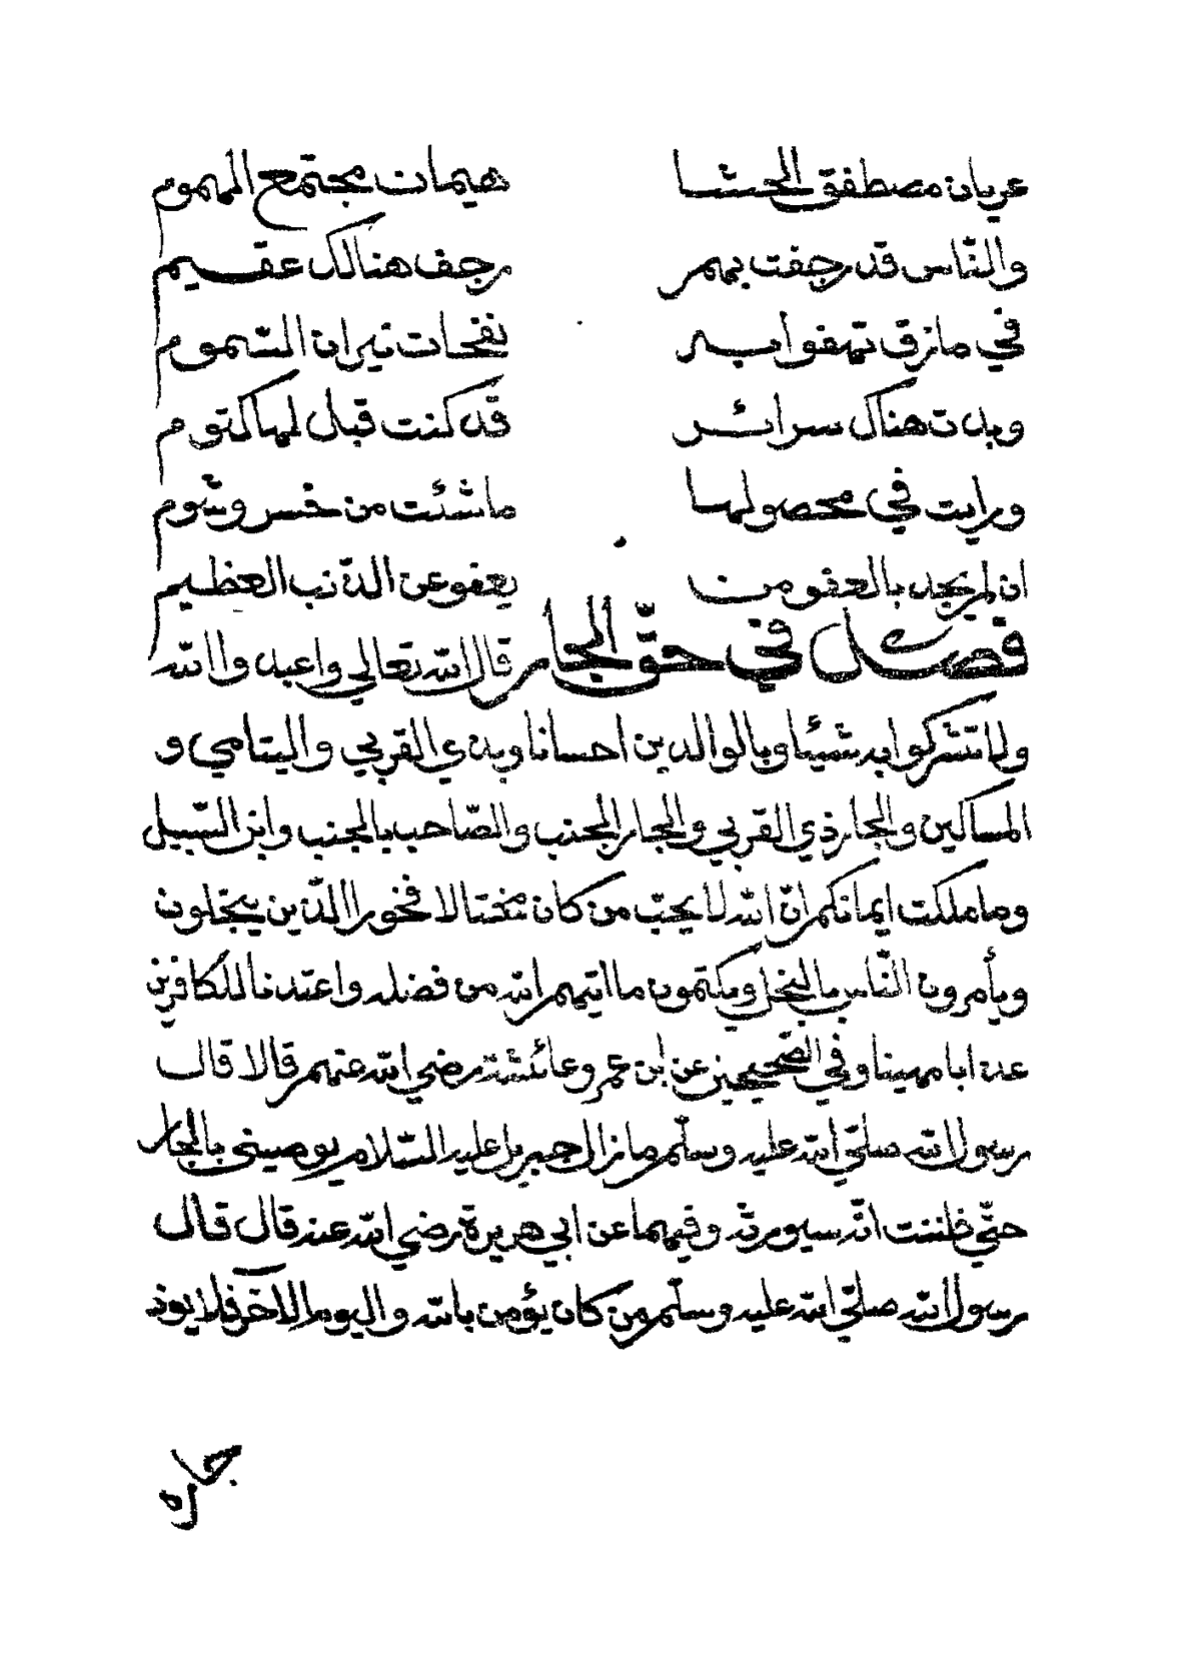 عريان مصطفق الحشا هيمان مجتمع الهموم
والنّاس قد رجفت بهم رجف هنالك عقيم
في مازق تهفوا به نفحات نيران السّموم
وبدت هناك سرائر قد كنت قبل لها كتوم
ورايت في محصولها ماشئت من خسر وشوم
ان لم يجد بالعفو من يعفو عن الذّنب العظيم
فصل في حقّ الجار قال الله تعالي واعبدوا الله
ولا تشركوا به شيئا وبالوالدين احسانا وبذي القربي واليتامي و
المساكين والجار ذي القربي والجار الجنب والصّاحب بالجنب وابن السّبيل
وما ملكت ايمانكم انّ الله لا يحبّ من كان مختالا فخورا الذّين يبخلون
ويأمرون النّاس بالبخل ويكتمون ما اتيهم الله من فضله واعتدنا للكافرين
عذابا مهينا وفي الصّحيحين عن ابن عمر وعائشة رضي الله عنهم قالا قال
رسول الله صلّي الله عليه وسلّم ما زال جبريل عليه السّلام يوصيني بالجار
حتّي ظننت انّه سيورثه وفيهما عن ابي هريرة رضي الله عنه قال قال
رسول الله صلّي الله عليه وسلّم من كان يؤمن بالله واليوم الآخر فلا يوذ
جاره